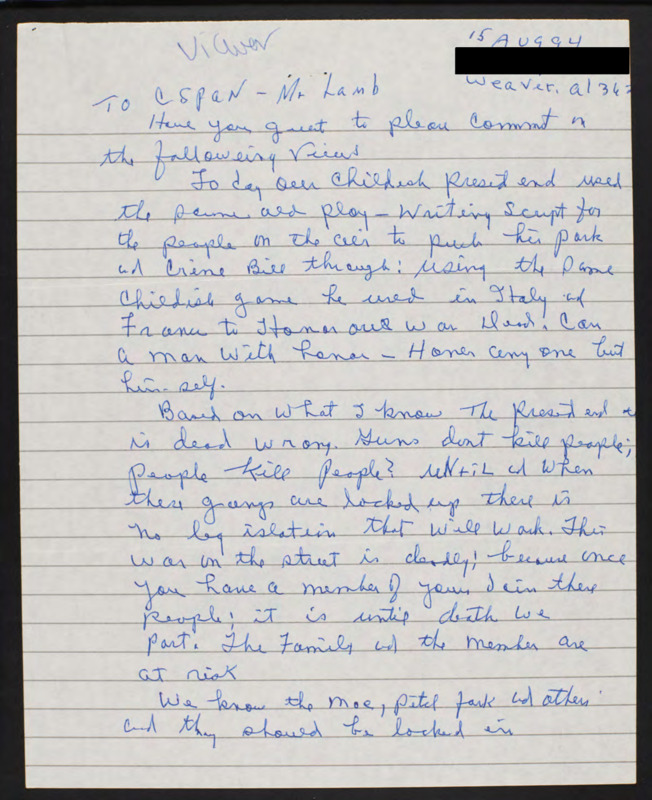 Viewer
15 Aug 94
Weaver, Al 362
To CSPAN - Mr Lamb
Have your guest to please Comment on
the followeing Views
To day our Childish Presid end used
the same old ploy - Writing Script for
the people on the air to push his pork
ad Crime Bill through: using the same
Childish game he used in Italy ad
France to Honor our War Dead. Can
a man With honor - Honor any one but
him-self.
Based on What I know The Presid end
is dead wrong. Guns dont kill people;
People Kill People? Until ad When
these gangs are locked up there is
No leg islation that Will Work. This
war on the street is deadly; because once
you have a member of your Join these
people; it is until death we
part. The Family ad the member are
at risk
We know the ad others
and they should be locked in